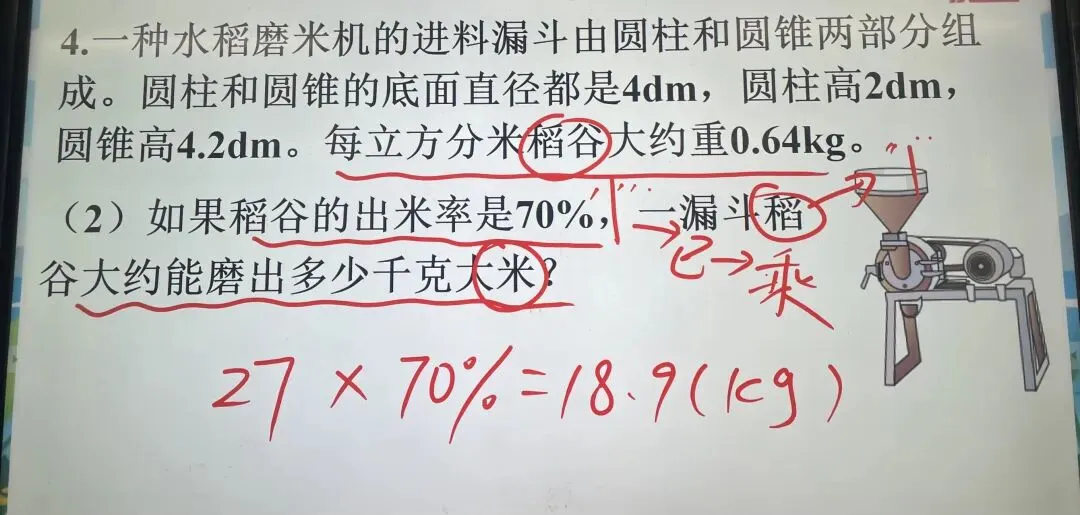 4.一种水稻磨米机的进料漏斗由圆柱和圆锥两部分组
成。圆柱和圆锥的底面直径都是4dm，圆柱高2dm，
圆锥高4.2dm。每立方分米稻谷大约重0.64kg。
（2）如果稻谷的出米率是70%，一漏斗稻
谷大约能磨出多少千克大米？
已→乘
27×70%=18.9(kg)